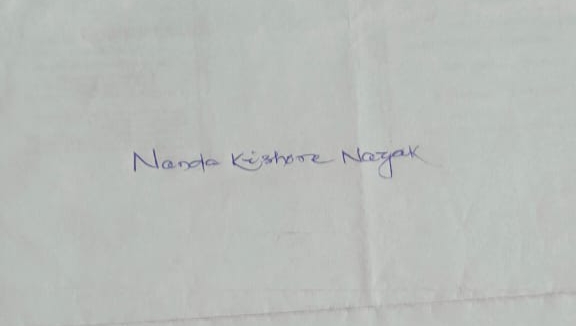 Nanda Kishore Nayak